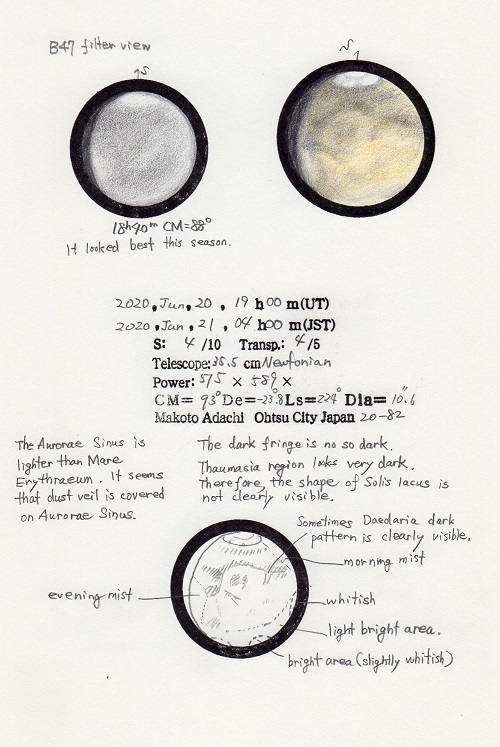 B47 filter view
S
S
18h40m CM=88°
It looked best this season.
2020, Jun, 20, 19 h 00 m (UT)
2020, Jun, 21, 04 h 00 m (JST)
S: 4 /10 Transp.: 4/5
Telescope: 35.5 cm Newtonian
Power: 515 × 589 ×
CM= 93° De=-23.8 Ls=224° Dia= 10.6"
Makoto Adachi Ohtsu City Japan 20-82
The Aurorae Sinus is
lighter than Mare
Erythraeum. It seems
that dust veil is covered
on Aurorae Sinus.
The dark fringe is no so dark.
Thaumasia region looks very dark.
Therefore, the shape of Solis lacus is
not clearly visible.
Sometimes Daedaria dark
pattern is clearly visible.
morning mist
evening mist
whitish
light bright area.
bright area (slightly whitish)